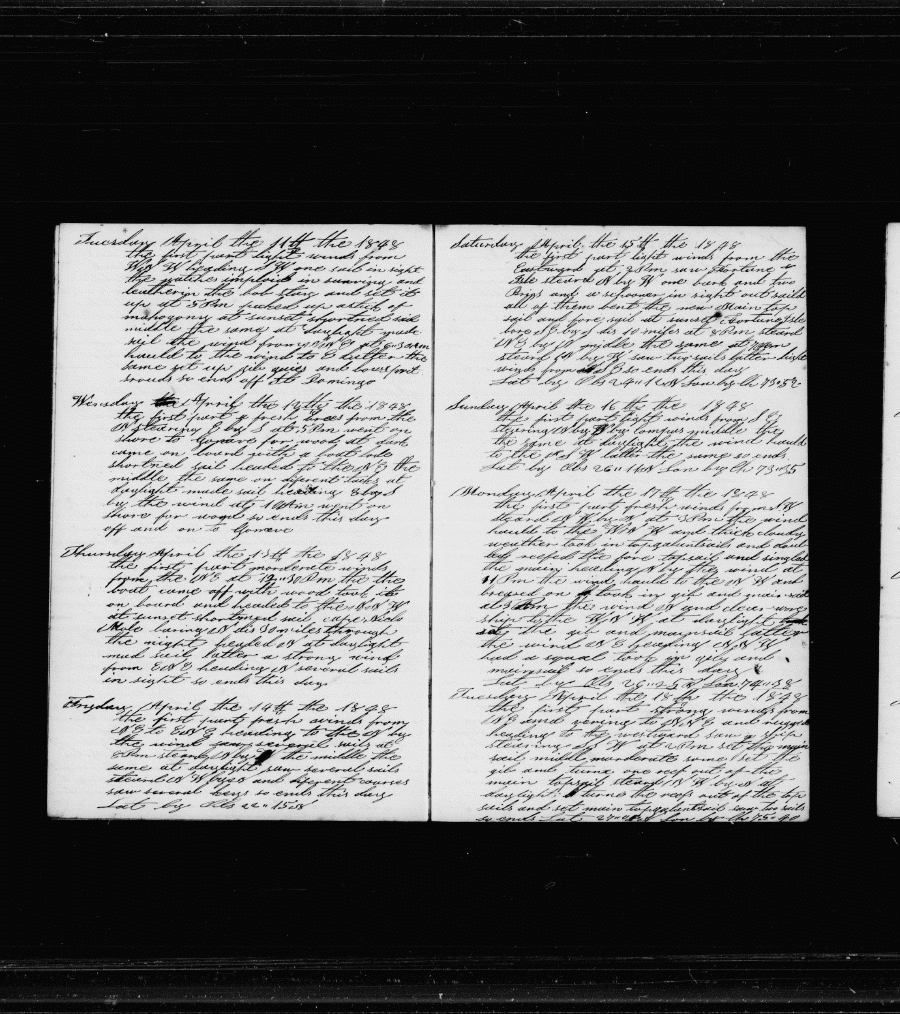 Tuesday April the 11th the 1848
the first part light winds from
heading N W one sail in sight
the watche imploid in and
leathering the bob stay and set it
up at 5 Pm picked up a stick of
mahogony at sunset shortned sail
middle the same at daylight made
sail the wind from at 6=30 Am
hauld to the wind to E latter the
same set up gib guies and bowsprit
srouds so ends off St Domingo
Wensday April the 12th the 1848
the first part a fresh breeze from the
N stearing E by S at 5 Pm went on
shore to Gonave for wood at dark
came on board with a boat lode
shortned sail headed to the N E the
middle the same on diferent tacks at
daylight made sail heading E by S
by the wind at 10 Am went on
shore for wood so ends this day
off and on to Gonave
Thursday April the 13th the 1848
the first part morderate winds
from the N E at 12=30 Pm the the
boat came off with wood took it
on board and headed to the N N W
at sunset shortned sail cape Nicho
Mole baring N dis 30 miles through
the night headed N at daylight
mad sail latter a strong wind
from E N E heading N several sails
in sight so ends this day
Fryday April the 14th the 1848
the first part fresh winds from
N E to E N E heading to the N by
the wind saw several sails at
8 Pm steard N by the middle the
same at daylight saw several sails
steard N W by N and diferent courses
saw several keys so ends this day
Lat by Obs 22"15 N
Saturday April the 15th the 1848
the first part light winds from the
Eastward at 2 Pm saw Fortune
Isle steard N by W one bark and two
Brigs and a schooner in sight out saild
all of them bent the new Main top
sail and fore sail at sunset Fortune Isle
bore S E by S dis 10 miles at 8 Pm steard
N E by N middle the same at
steard N by W saw two sails latter light
winds from S E so ends this day
Lat by Obs 24"16 N Lon by Ch 73"52
Sunday April the 16 th the 1848
the first part light winds from S E
stearing N by W by Compas middle the
the same at daylight the wind hauld
to the W S W latter the same so ends
Lat by Obs 26"11 N Lon by Ch 73"35
Monday April the 17th the 1848
the first part fresh winds from S W
steard N W by N at 3 Pm the wind
hauld to the W N W and thick cloudy
weather took in topgalentsails and doubl
reefed the fore topsail and singled
the main heading N by the wind at
11 Pm the wind hauld to the N W and
breesed on took in gib and main sail
at the wind N and clear wore
ship to the W N W at daylight
set the gib and mainsail latter
the wind N E heading N N W
had a squal took in gib and
mainsail so ends this day
Lat by Obs 26"25 N Lon 74"38
Tuesday April the 18th the 1848
the first part strong winds from
N E and going to N N E and rugged
heading to the westward saw a ship
stearing S W at 2 Pm set the main
sail middle morderate some set the
gib and turnd one reef out of the
main topsail steard N W by N at
daylight turned the reefs out of the top
sails and set main topgalentsail saw two sails
so ends Lat Lon by Ch 75"40